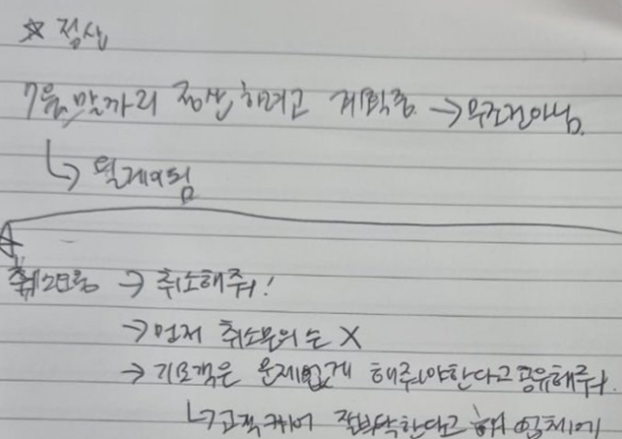 ☆ 정산
7월 말까지 정산 하려고 계획중 → 무조건아님.
↳ 딜레이됨
취소요청 → 취소해줘!
→ 먼저 취소문의는 X
→ 기존고객은 문제없게 해줘야한다고 공유해줘.
↳ 고객케어 잘부탁한다고 해 업체에